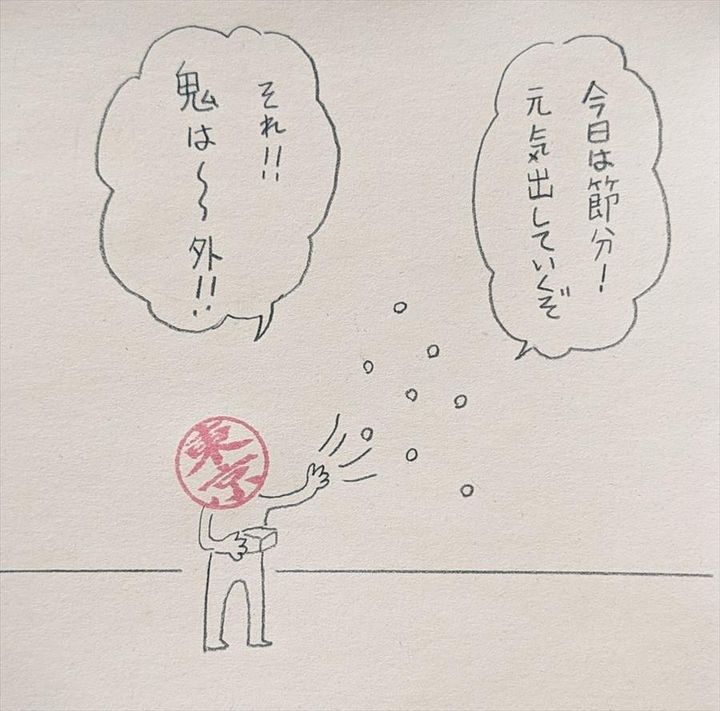 今日は節分!
元気出していくぞ
それ!!
鬼は〜〜外!!
東京